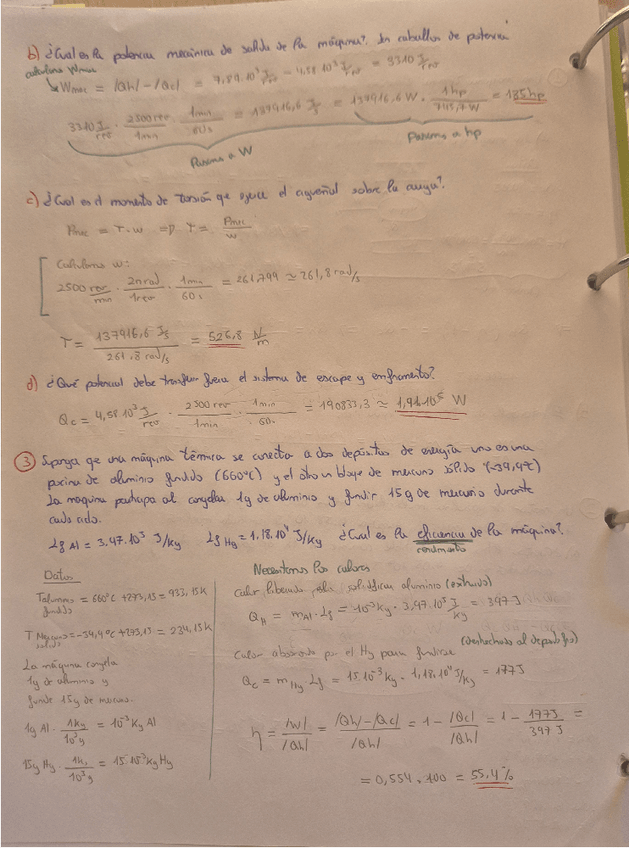 b) ¿Cual es la potencia mecánica de salida de la máquina? En caballos de potencia
calculamos Wmec
Wmec = |Qh|-|Qc| = 7,89.10³ J/rev - 4,58.10³ J/rev = 3310 J/rev
3310 J/rev · 2500 rev/1min · 1min/60s = 137916,6 J/s = 137916,6 W · 1hp/745,7W = 185hp
Pasamos a W
Pasamos a hp
c) ¿Cual es el momento de torsión que ejerce el cigueñal sobre la carga?
Pmec = τ·w => τ = Pmec/w
Calculamos w:
2500 rev/min · 2π rad/1rev · 1min/60s = 261,799 ≃ 261,8 rad/s
τ = 137916,6 J/s / 261,8 rad/s = 526,8 N/m
d) ¿Qué potencial debe transferir fuera el sistema de escape y enfriamento?
Qc = 4,58·10³ J/rev · 2500 rev/1min · 1min/60s = 190833,3 ≃ 1,91·10⁵ W
③ Suponga que una máquina térmica se conecta a dos depósitos de energía uno es una
piscina de aluminio fundido (660ºC) y el otro un bloque de mercurio sólido (-39,4ºC)
La maquina participa al congelar 1g de aluminio y fundir 15g de mercurio durante
cada ciclo.
Lf Al = 3,97.10³ J/kg Lf Hg = 1,18.10⁴ J/kg ¿Cual es la eficiencia de la máquina?
rendimiento
Datos
T aluminio fundido = 660ºC + 273,15 = 933,15K
= -39,4ºC + 273,15 = 234,15K
La máquina congela
1g de aluminio y
funde 15g de mercurio.
1g Al · 1kg/10³g = 10⁻³ kg Al
15g Hg · 1kg/10³g = 15·10⁻³ kg Hg
Necesitamos los calores
Calor liberado solidificar aluminio (extraido)
QH = mAl · Lf = 10⁻³ kg · 3,97.10³ J/kg = 397 J
(deshechado al depósito frío)
Calor absorbido por el Hg para fundirse
Qc = mHg Lf = 15.10⁻³ kg · 1,18.10⁴ J/kg = 177 J
η = |W|/|Qh| = |Qh|-|Qc|/|Qh| = 1 - |Qc|/|Qh| = 1 - 177J/397J =
= 0,554 · 100 = 55,4%